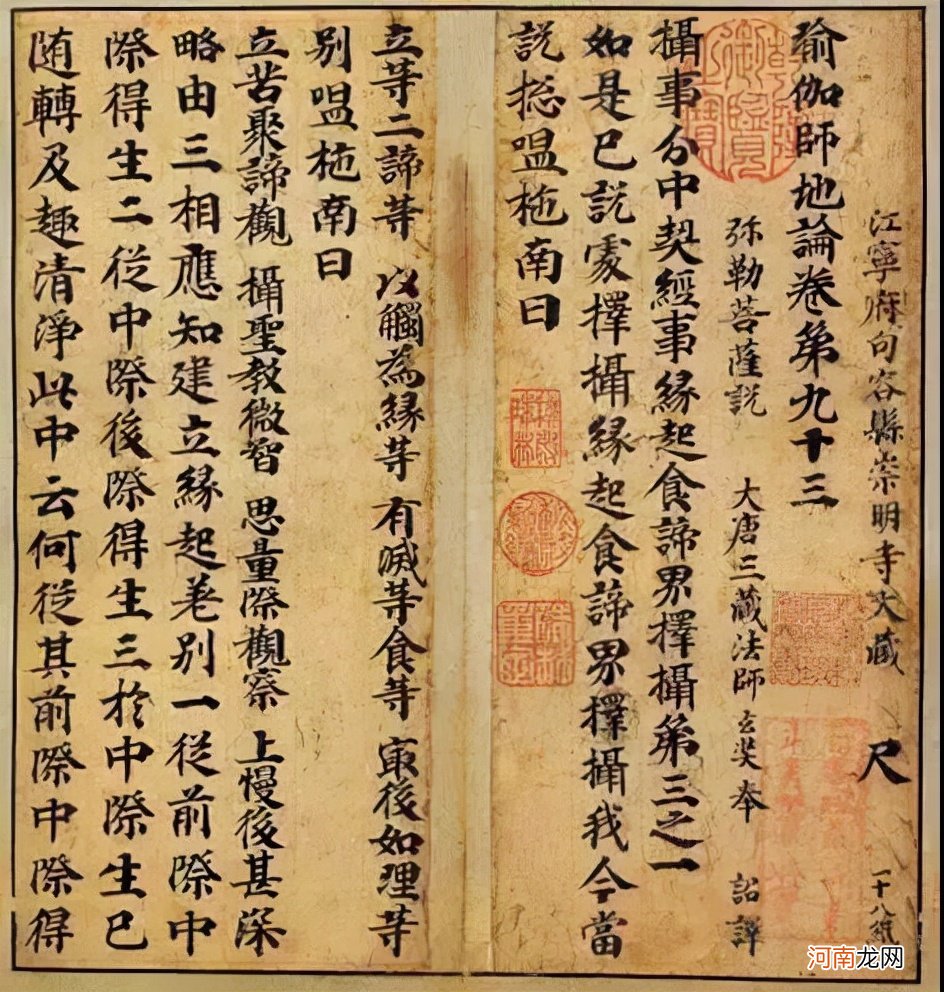 江寧府句容縣崇明寺大藏 尺 一十八紙
瑜伽師地論卷第九十三
弥勒菩薩説 大唐三藏法師玄奘奉 詔譯
攝事分中契經事緣起食諦界擇攝第三之一
如是已説處擇攝緣起食諦界擇攝我今當
説揔嗢柁南曰
立等二諦等 以觸為緣等 有滅等食等 㝡後如理等
別嗢柁南曰
立苦聚諦觀 攝聖教微智 思量際觀察 上慢後甚深
略由三相應知建立緣起差別一從前際中
際得生二從中際後際得生三於中際生已
随轉及趣清淨此中云何從其前際中際得
河南龙网